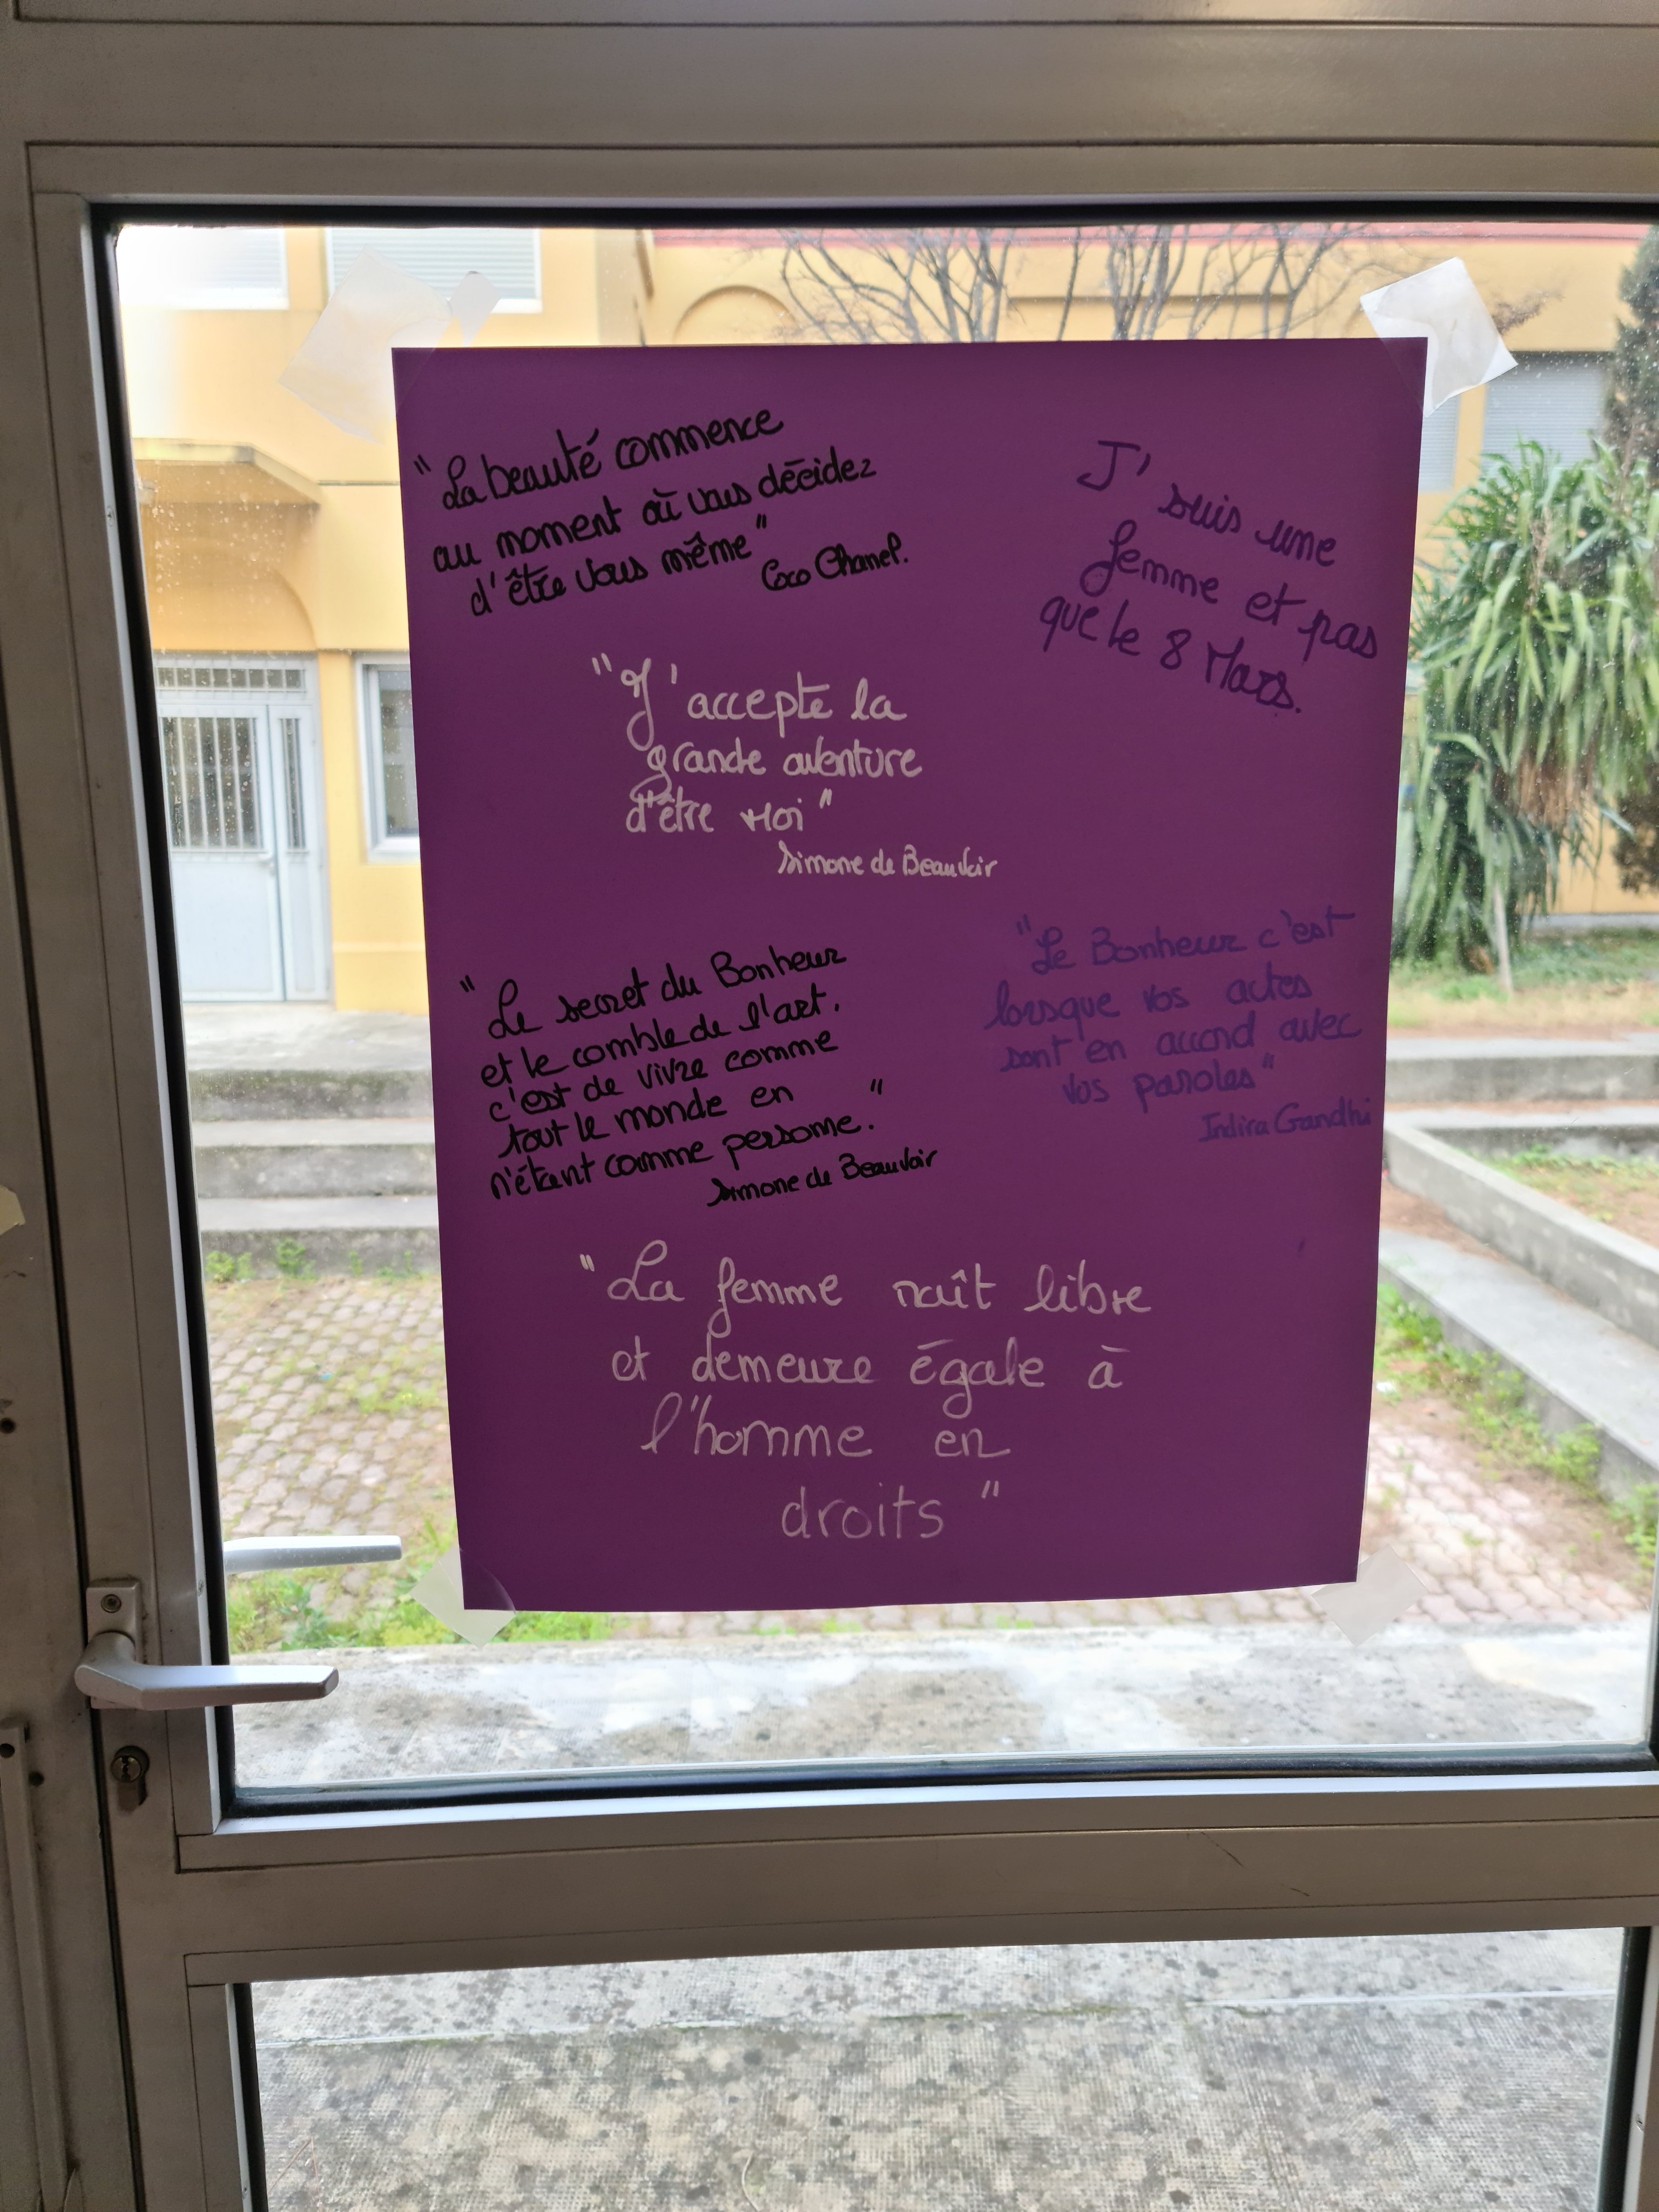 "La beauté commence
au moment où vous décidez
d'être vous même"
Coco Chanel.
J'suis une
femme et pas
que le 8 Mars.
"J'accepte la
grande aventure
d'être Moi"
Simone de Beauvoir
"Le secret du Bonheur
et le comble de l'art,
c'est de vivre comme
tout le monde en
n'étant comme personne."
Simone de Beauvoir
"Le Bonheur c'est
lorsque vos actes
sont en accord avec
vos paroles"
Indira Gandhi
"La femme naît libre
et demeure égale à
l'homme en
droits"